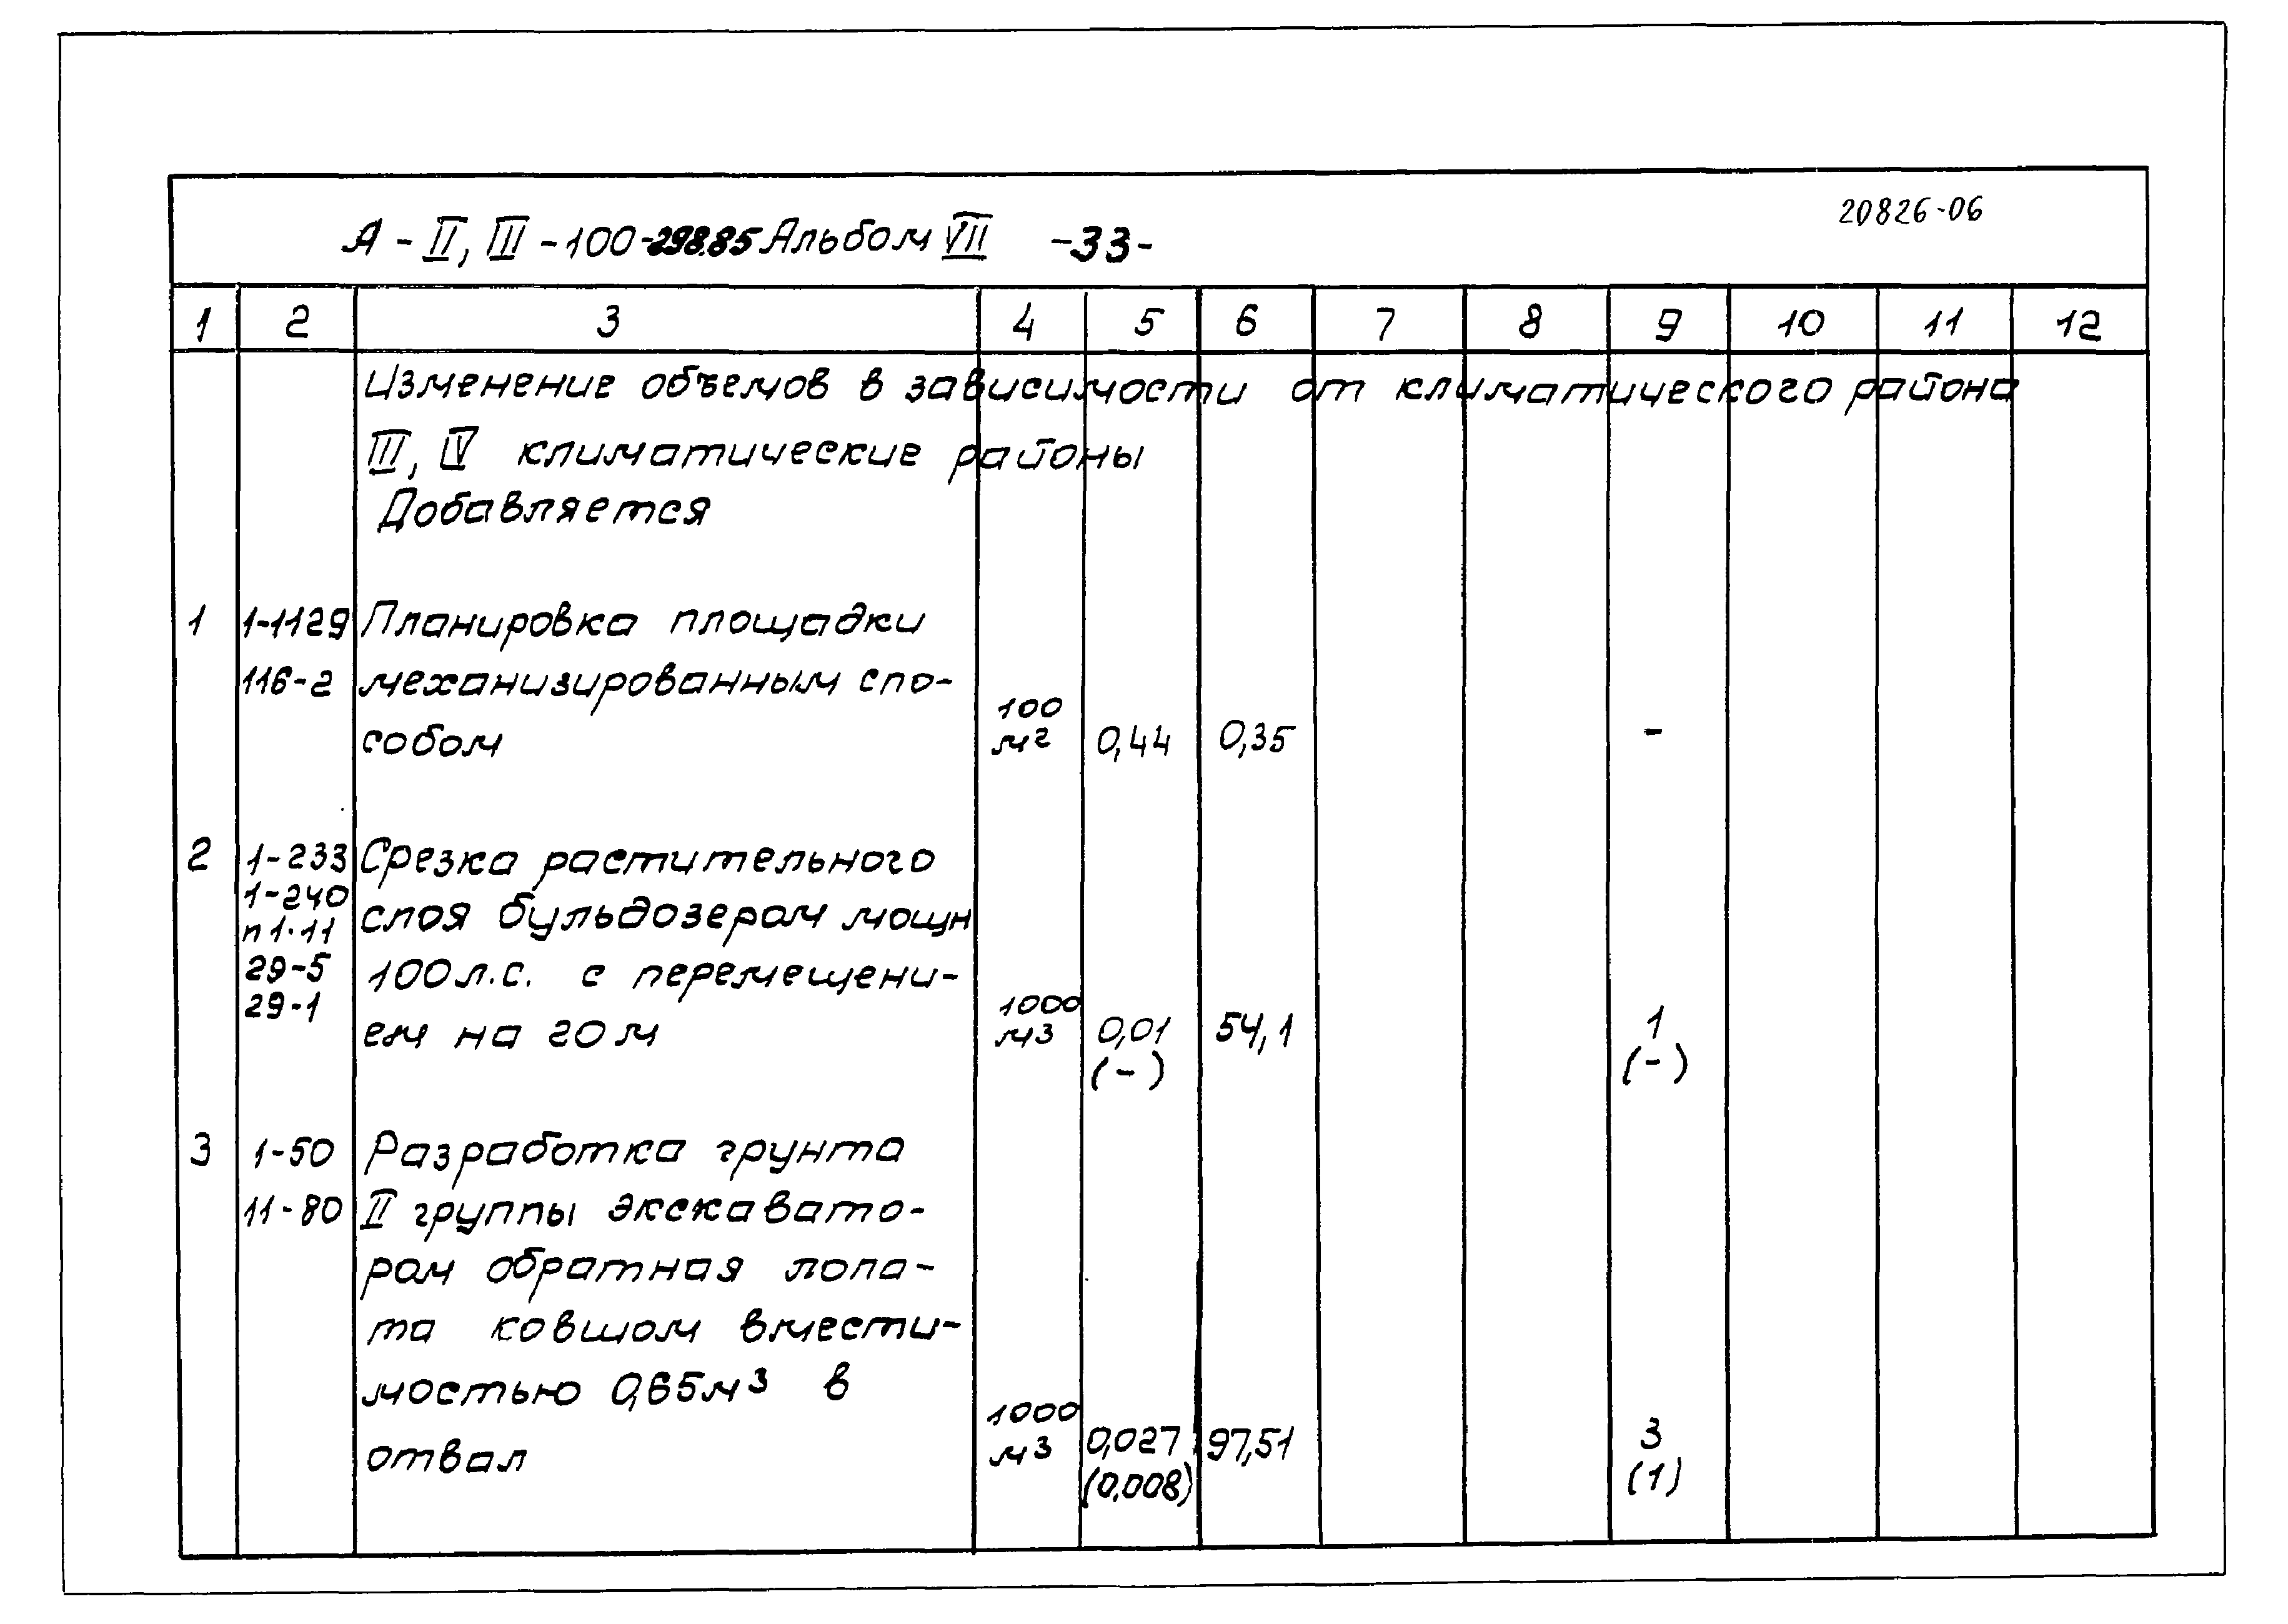 20826-06
А - II, III - 100-298.85 Альбом VII -33-
1 2 3 4 5 6 7 8 9 10 11 12
Изменение объемов в зависимости от климатического района
III, IV климатические районы
Добавляется
1 1-1129 Планировка площадки
116-2 механизированным спо-
собом 100 м2 0,44 0,35 -
2 1-233 Срезка растительного
1-240
слоя бульдозером мощн
п1.11
29-5 100 л.с. с перемещени-
29-1
ем на 20м 1000 м3 0,01 54,1 1
(-) (-)
3 1-50 Разработка грунта
11-80 II группы экскавато-
ром обратная лопа-
та ковшом вмести-
мостью 0,65м3 в
отвал 1000 м3 0,027 97,51 3
(0,008) (1)